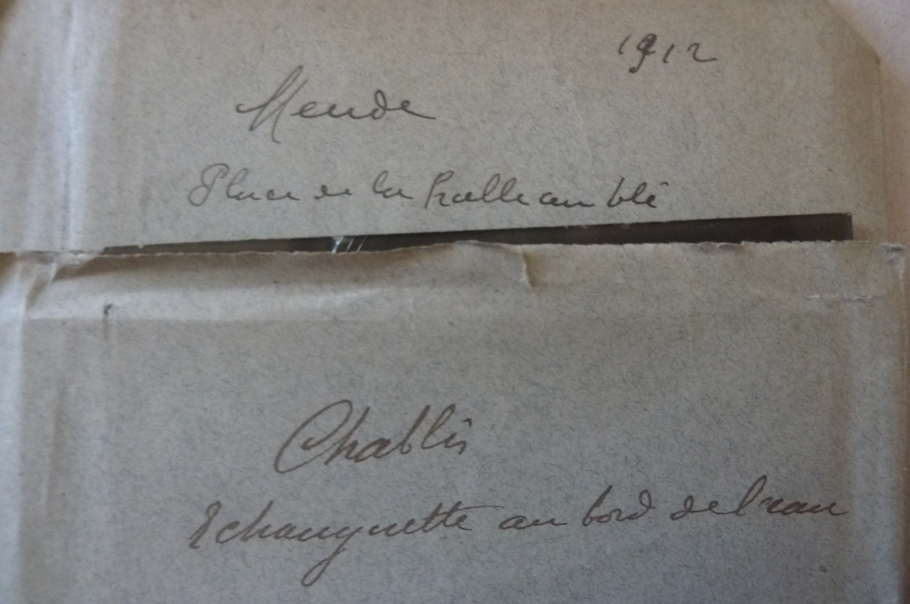 1912
Mende
Place de la halle au blé
Chablis
Echauguette au bord de l'eau